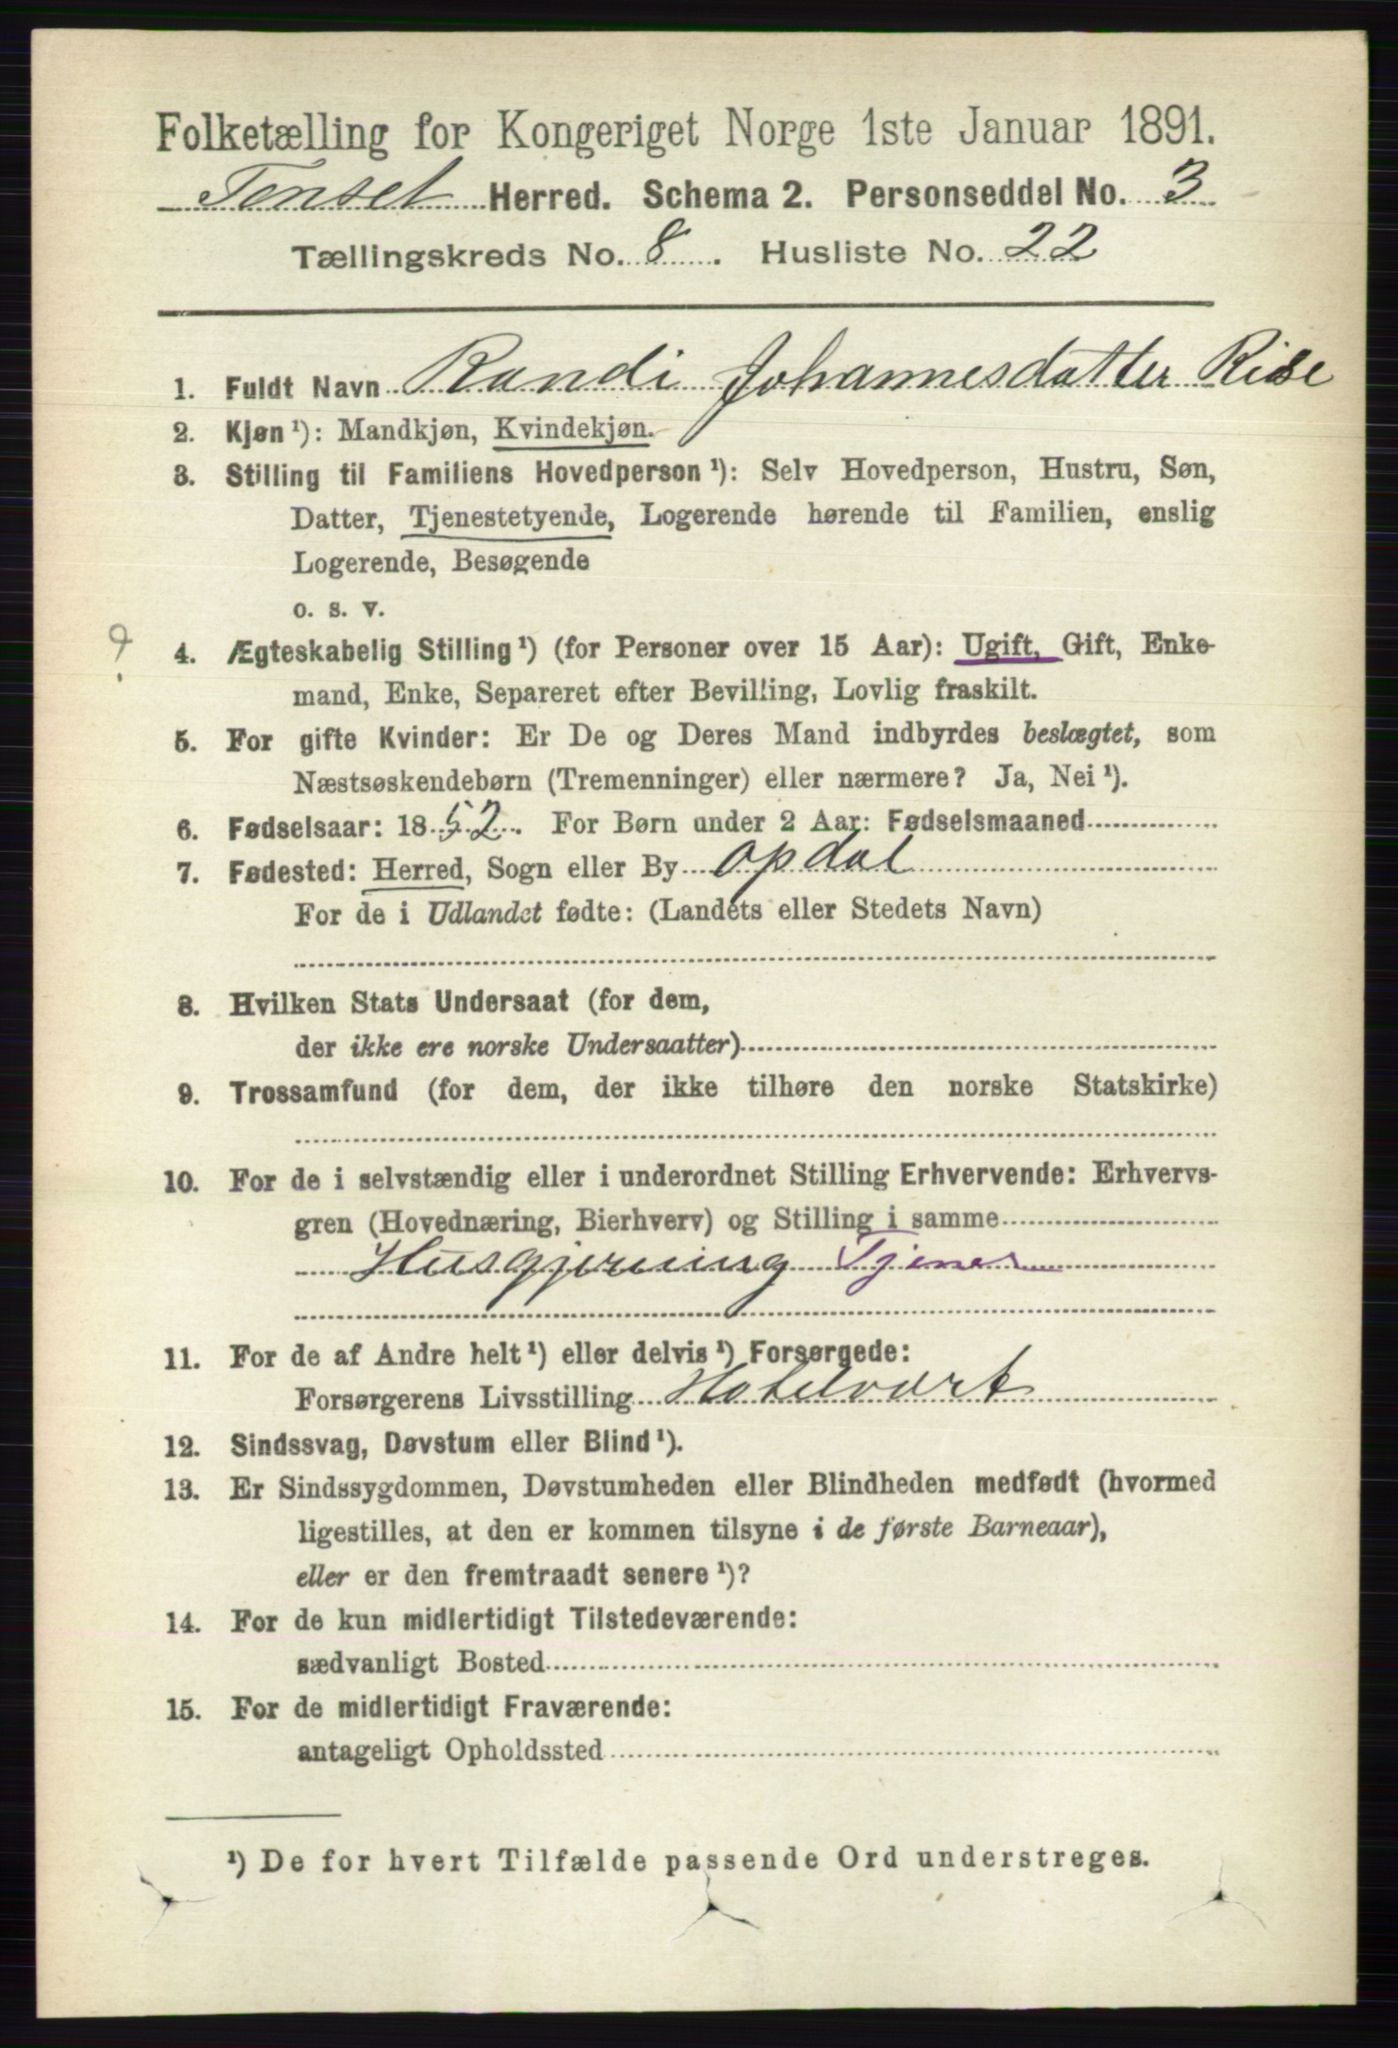 Folketælling for Kongeriget Norge 1ste Januar 1891.
Tønset Herred. Schema 2. Personseddel No. 3
Tællingskreds No. 8. Husliste No. 22
1. Fuldt Navn Randi Johannesdatter Rise
2. Kjøn ¹): Mandkjøn, Kvindekjøn.
3. Stilling til Familiens Hovedperson ¹): Selv Hovedperson, Hustru, Søn,
Datter, Tjenestetyende, Logerende hørende til Familien, enslig
Logerende, Besøgende
o. s. v.
?
4. Ægteskabelig Stilling ¹) (for Personer over 15 Aar): Ugift, Gift, Enke-
mand, Enke, Separeret efter Bevilling, Lovlig fraskilt.
5. For gifte Kvinder: Er De og Deres Mand indbyrdes beslægtet, som
Næstsøskendebørn (Tremenninger) eller nærmere? Ja, Nei ¹).
6. Fødselsaar: 1852. For Børn under 2 Aar: Fødselsmaaned
7. Fødested: Herred, Sogn eller By Opdal
For de i Udlandet fødte: (Landets eller Stedets Navn)
8. Hvilken Stats Undersaat (for dem,
der ikke ere norske Undersaatter)
9. Trossamfund (for dem, der ikke tilhøre den norske Statskirke)
10. For de i selvstændig eller i underordnet Stilling Erhvervende: Erhvervs-
gren (Hovednæring, Bierhverv) og Stilling i samme
Husgjerning Tjener
11. For de af Andre helt ¹) eller delvis ¹) Forsørgede:
Forsørgerens Livsstilling Hotelvært
12. Sindssvag, Døvstum eller Blind ¹).
13. Er Sindssygdommen, Døvstumheden eller Blindheden medfødt (hvormed
ligestilles, at den er kommen tilsyne i de første Barneaar),
eller er den fremtraadt senere ¹)?
14. For de kun midlertidigt Tilstedeværende:
sædvanligt Bosted
15. For de midlertidigt Fraværende:
antageligt Opholdssted
¹) De for hvert Tilfælde passende Ord understreges.